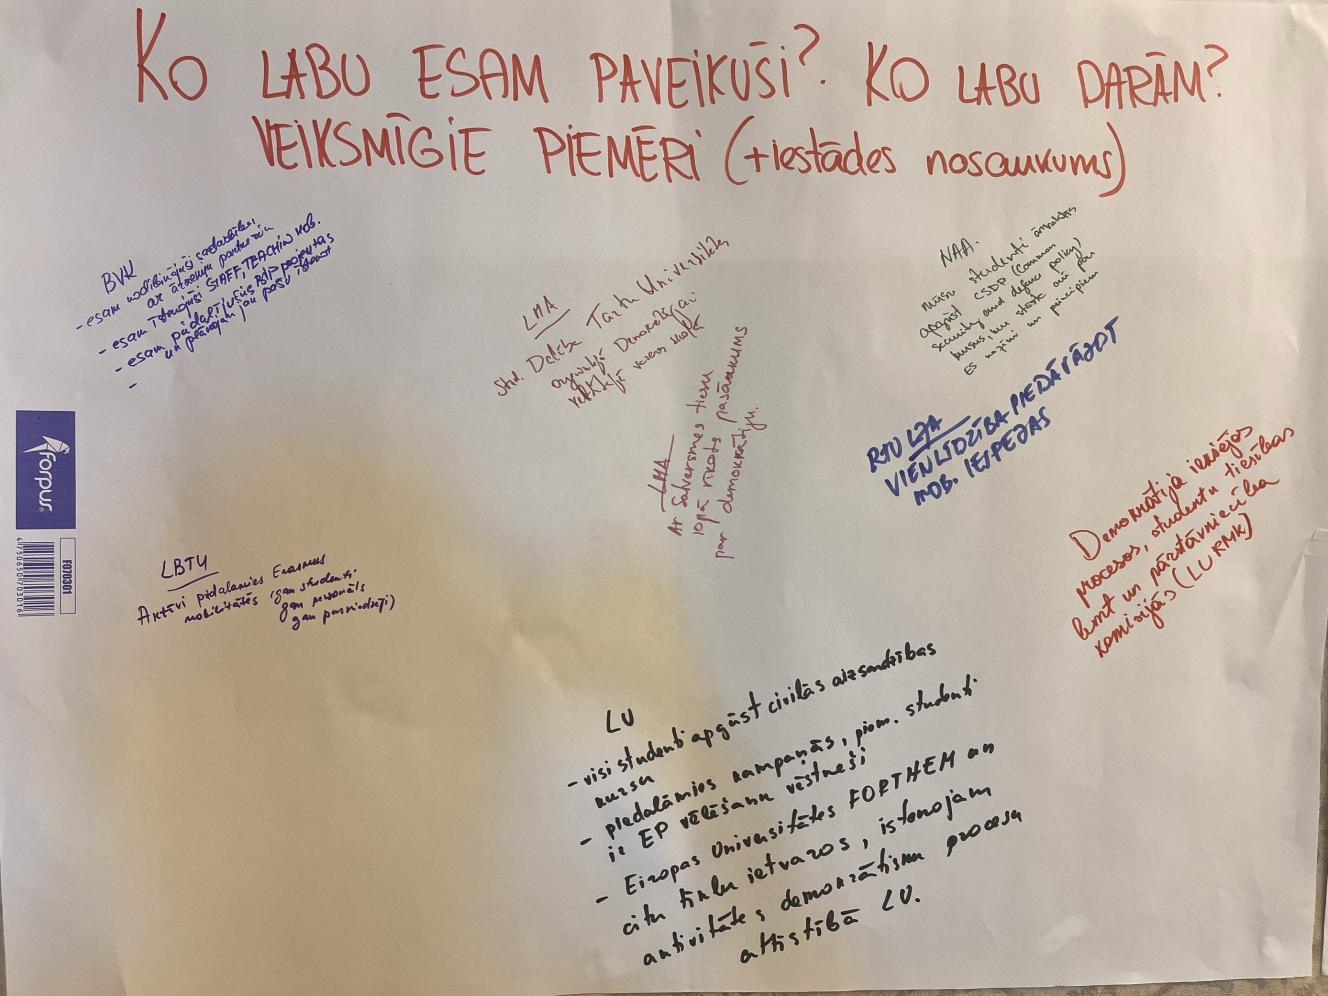 KO LABU ESAM PAVEIKUŠI? KO LABU DARĀM?
VEIKSMĪGIE PIEMĒRI (+iestādes nosaukums)
BVK
- esam nodibinājuši sadarbību
ar ārzemju partneriem
- esam īstenojuši STAFF, TEACHIN MOB.
- esam piedalījušies BIP projektos
un plānojam jau paši īstenot
-
LMA
Stud. Delēta Tartu Universitātes
organizētajā Demokrātijas
vasaras skolā
LMA
Ar Satversmes tiesu
kopā rīkots pasākums
par demokrātiju.
NAA.
mūsu studenti ārvalstīs
apgūst CSDP (Common
security and defence policy)
kursus, kur stāsta arī par
ES mājām un principiem
RTU LJA
VIENLĪDZĪBA PIEDĀVĀJOT
MOB. IESPEJAS
Demokrātijā iesējos
procesos, studentu tiesības
lemt un pārstāvniecība
komisijās (LU RMK)
forpus®
FO70301
4750650703016
LBTU
Aktīvi piedalamies Erasmus
mobilitātēs (gan studenti
gan personāls
gan pasniedzēji)
LU
- visi studenti apgūst civilās aizsardzības
kursu
- piedalāmies kampaņās, piem. studenti
ir EP vēlēšanu vēstneši
- Eiropas Universitātes FORTHEM un
citu tīklu ietvaros, īstenojam
aktivitātes demokrātisku procesu
attīstībā LU.